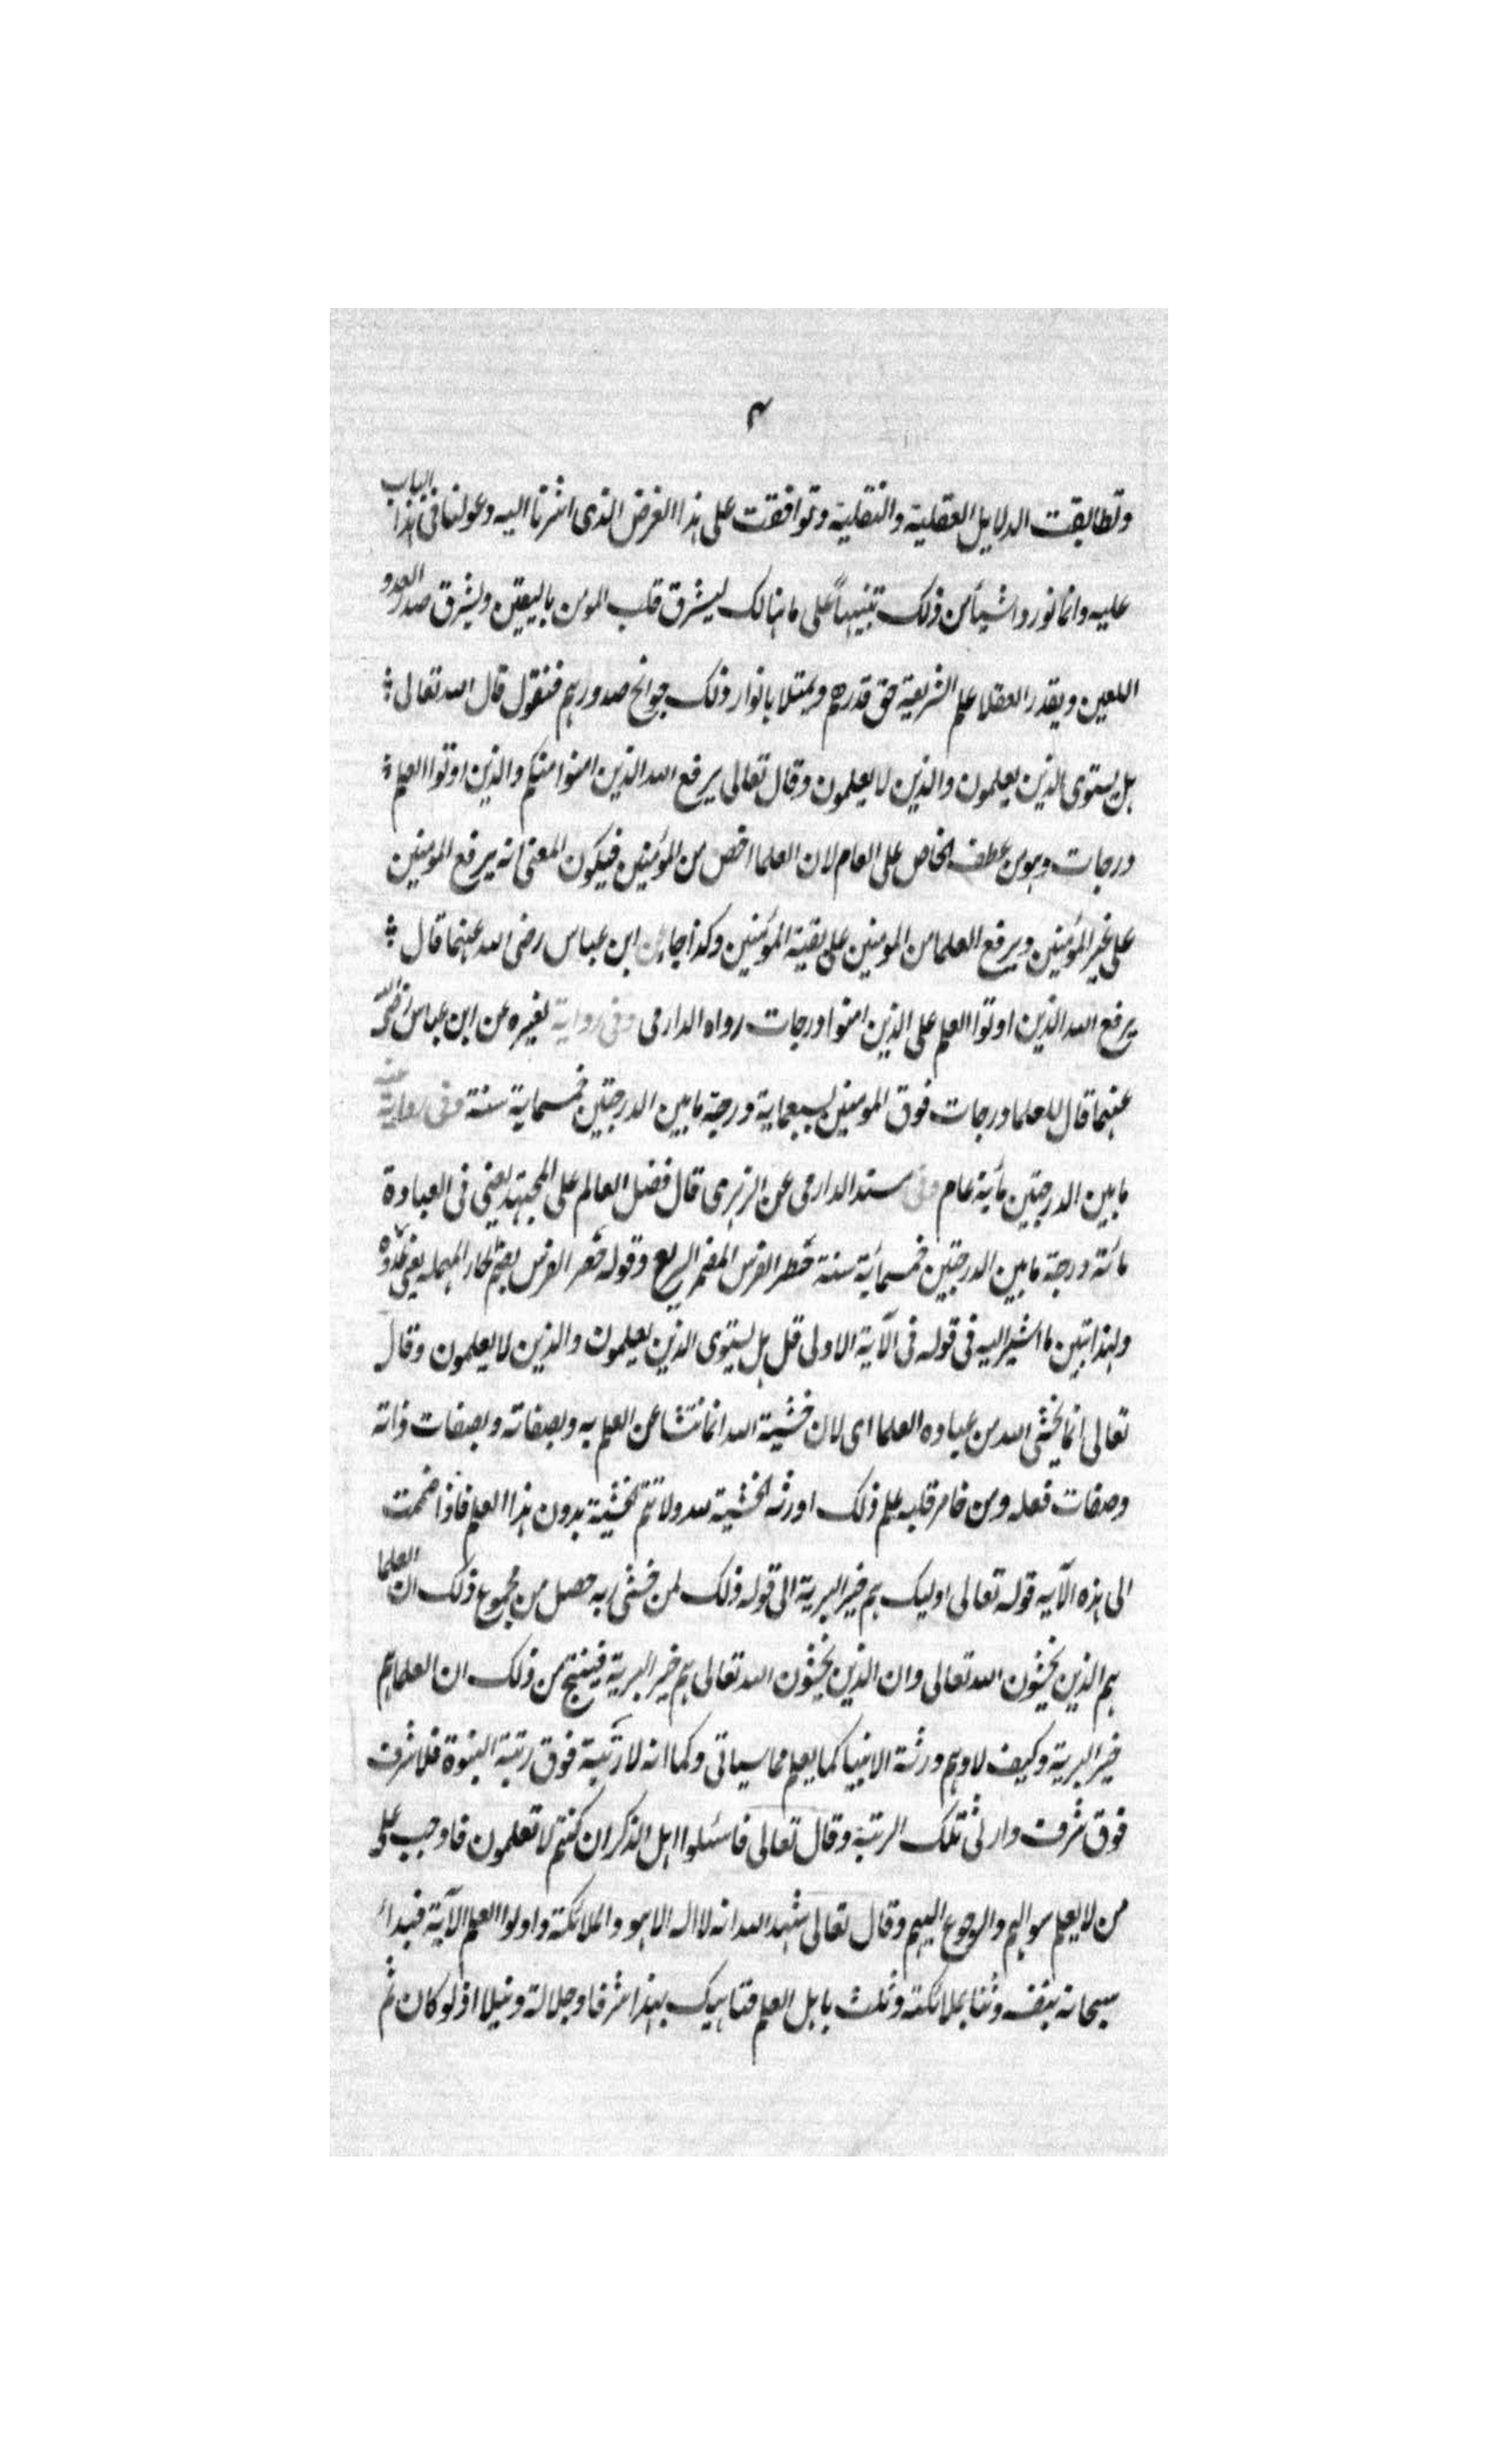 ٣
وتطابقت الدلايل العقلية والنقلية وتوافقت على هذا الغرض الذى اشرنا اليه وعولنا فى هذا الباب
عليه وانما نورد اشيأ من ذلك تنبيهاً على ما هنالك ليشرق قلب المومن باليقين ويشرق صدر العدو
اللعين ويقدر العقلا علم الشريعة حق قدرهم ويمتلا بانوار ذلك جوانح صدورهم فنقول قال الله تعالى
هل يستوى الذين يعلمون والذين لا يعلمون وقال تعالى يرفع الله الذين امنوا منكم والذين اوتوا العلم
درجات وهو من عطف الخاص على العام لان العلما اخص من المؤمنين فيكون المعنى انه يرفع المومنين
على غير المؤمنين ويرفع العلما من المومنين على بقية المؤمنين وكذا جا عن ابن عباس رضى الله عنهما قال
يرفع الله الذين اوتوا العلم على الذين امنوا درجات رواه الدارمى وفى رواية لغيره عن ابن عباس رضى الله
عنهما قال للعلما درجات فوق المومنين بسبعماية درجة ما بين الدرجتين خمسماية سنة وفى رواية عنه
ما بين الدرجتين مأية عام وفى سند الدارمى عن الزهرى قال فضل العالم على المجتهد يعنى فى العبادة
مائة درجة ما بين الدرجتين خمسمائة سنة حضر الفرس المضمر السريع وقوله حضر الفرس بضم الحاء المهملة يعنى عدوه
ولهذا تبين ما اشير اليه فى قوله فى الآية الاولى قل هل يستوى الذين يعلمون والذين لا يعلمون وقال
تعالى انما يخشى الله من عباده العلما اى لان خشية الله انما تنشا عن العلم به وبصفاته وبصفات ذاته
وصفات فعله ومن خامر قلبه علم ذلك اورثه الخشية لله ولا تتم الخشية بدون هذا العلم فاذا ضمت
الى هذه الآيه قوله تعالى اوليك هم خير البرية الى قوله ذلك لمن خشى ربه حصل من مجموع ذلك ان العلما
هم الذين يخشون الله تعالى وان الذين يخشون الله تعالى هم خير البرية فينتج من ذلك ان العلما هم
خير البرية وكيف لا وهم ورثة الانبيا كما يعلم مما سياتى وكما انه لا رتبة فوق رتبة النبوة فلا شرف
فوق شرف وارث تلك الرتبة وقال تعالى فاسئلوا اهل الذكر ان كنتم لا تعلمون فاوجب على
من لا يعلم سوالهم والرجوع اليهم وقال تعالى شهد الله انه لا اله الا هو والملائكة واولوا العلم الآية فبدأ
سبحانه بنفسه وثنا بملائكته وثلث باهل العلم فناهيك بهذا شرفا وجلالة ونيلا اذ لو كان ثم